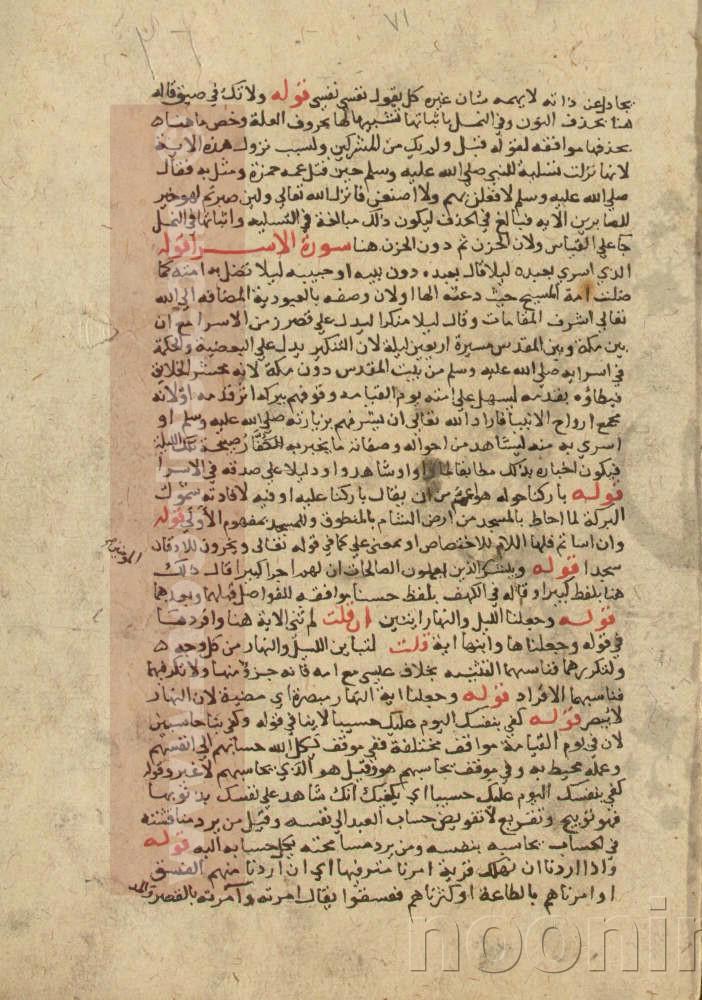 ٧١
يجادل عن ذاته لا يهمه شان غيره كل يقول نفسي نفسي قوله ولا تك في ضيق قاله
هنا بحذف النون وفي النمل باثباتها تشبيها لها بحروف العلة وخص ما هنا
بحذفها موافقة لقوله قبل ولم يك من المشركين ولسبب نزول هذه الاية
لانها نزلت تسلية للنبي صلي الله عليه وسلم حين قتل عمه حمزة ومثل به فقال
صلي الله عليه وسلم لافعلن بهم ولا صنعن فانزل الله تعالي ولين صبرتم لهو خير
للصابرين الاية فبالغ في الحذف ليكون ذلك مبالغة في التسلية واثباتها في النمل
جا علي القياس ولان الحزن ثم دون الحزن هنا سورة الاسرا قوله
الذي اسري بعبده ليلا قال بعبده دون نبيه او حبيبه ليلا تضل به امته كما
ضلت امة المسيح حيث دعته الها او لان وصفه بالعبودية المضافة الي الله
تعالي اشرف المقامات وقال ليلا منكرا ليدل علي قصر زمن الاسرا مع ان
بين مكة وبين المقدس مسيرة اربعين ليلة لان التنكير يدل علي البعضية والحكمة
في اسرايه صلي الله عليه وسلم من بيت المقدس دون مكة لانه محشر الخلايق
فيطاؤه بقدمه ليسهل علي امته يوم القيامة وقوفهم ببركة اثر قدمه او لانه
مجمع ارواح الانبيا فاراد الله تعالي ان يشرفهم بزيارته صلي الله عليه وسلم او
اسري به منه ليشاهد من احواله وصفاته ما يخبر به الكفار صبيحة تلك الليلة
فيكون اخباره بذلك مطابقا لما راوا وشاهدوا ودليلا علي صدقه في الاسرا
قوله باركنا حوله هو اعم من ان يقال باركنا عليه او فيه لافادته شمول
البركة لما احاط بالمسجد من ارض الشام بالمنطوق وللمسجد بمفهوم الاولي قوله
وان اساتم فلها اللام للاختصاص او بمعني علي كما في قوله تعالي ويخرون للاذقان
سجدا قوله ويبشر الذين يعملون الصالحات ان لهم اجرا كبيرا قال ذلك
هنا بلفظ كبيرا وقاله في الكهف بلفظ حسنا موافقة للفواصل قبلهما وبعدهما
قوله وجعلنا الليل والنهار ايتين ان قلت لم ثني الاية هنا وافردها
في قوله وجعلناها وابنها اية قلت لتباين الليل والنهار من كل وجه
ولتكررهما فناسبهما التثنية بخلاف عيسي مع امه فانه جزو منها ولا تكرر فيهما
فناسبهما الافراد قوله وجعلنا اية النهار مبصرة اي مضية لان النهار
لا يبصر قوله كفي بنفسك اليوم عليك حسيبا لا ينافي قوله وكفي بنا حاسبين
لان في يوم القيامة مواقف مختلفة ففي موقف يكل الله حسابهم الي انفسهم
وعلمه محيط به وفي موقف يحاسبهم هو وقيل هو الذي يحاسبهم لا غير وقوله
كفي بنفسك اليوم عليك حسيبا اي يكفيك انك شاهد علي نفسك بذنوبها
فهو توبيخ وتقريع لا تفويض حساب العبد الي نفسه وقيل من يرد مناقشته
في الحساب يحاسبه بنفسه ومن يرد مسامحته يكل حسابه اليه قوله
واذا اردنا ان نهلك قرية امرنا مترفيها اي ان اردنا منهم الفسق
او امرناهم بالطاعة او كثرناهم ففسقوا يقال امرته وآمرته بالقصر والمد